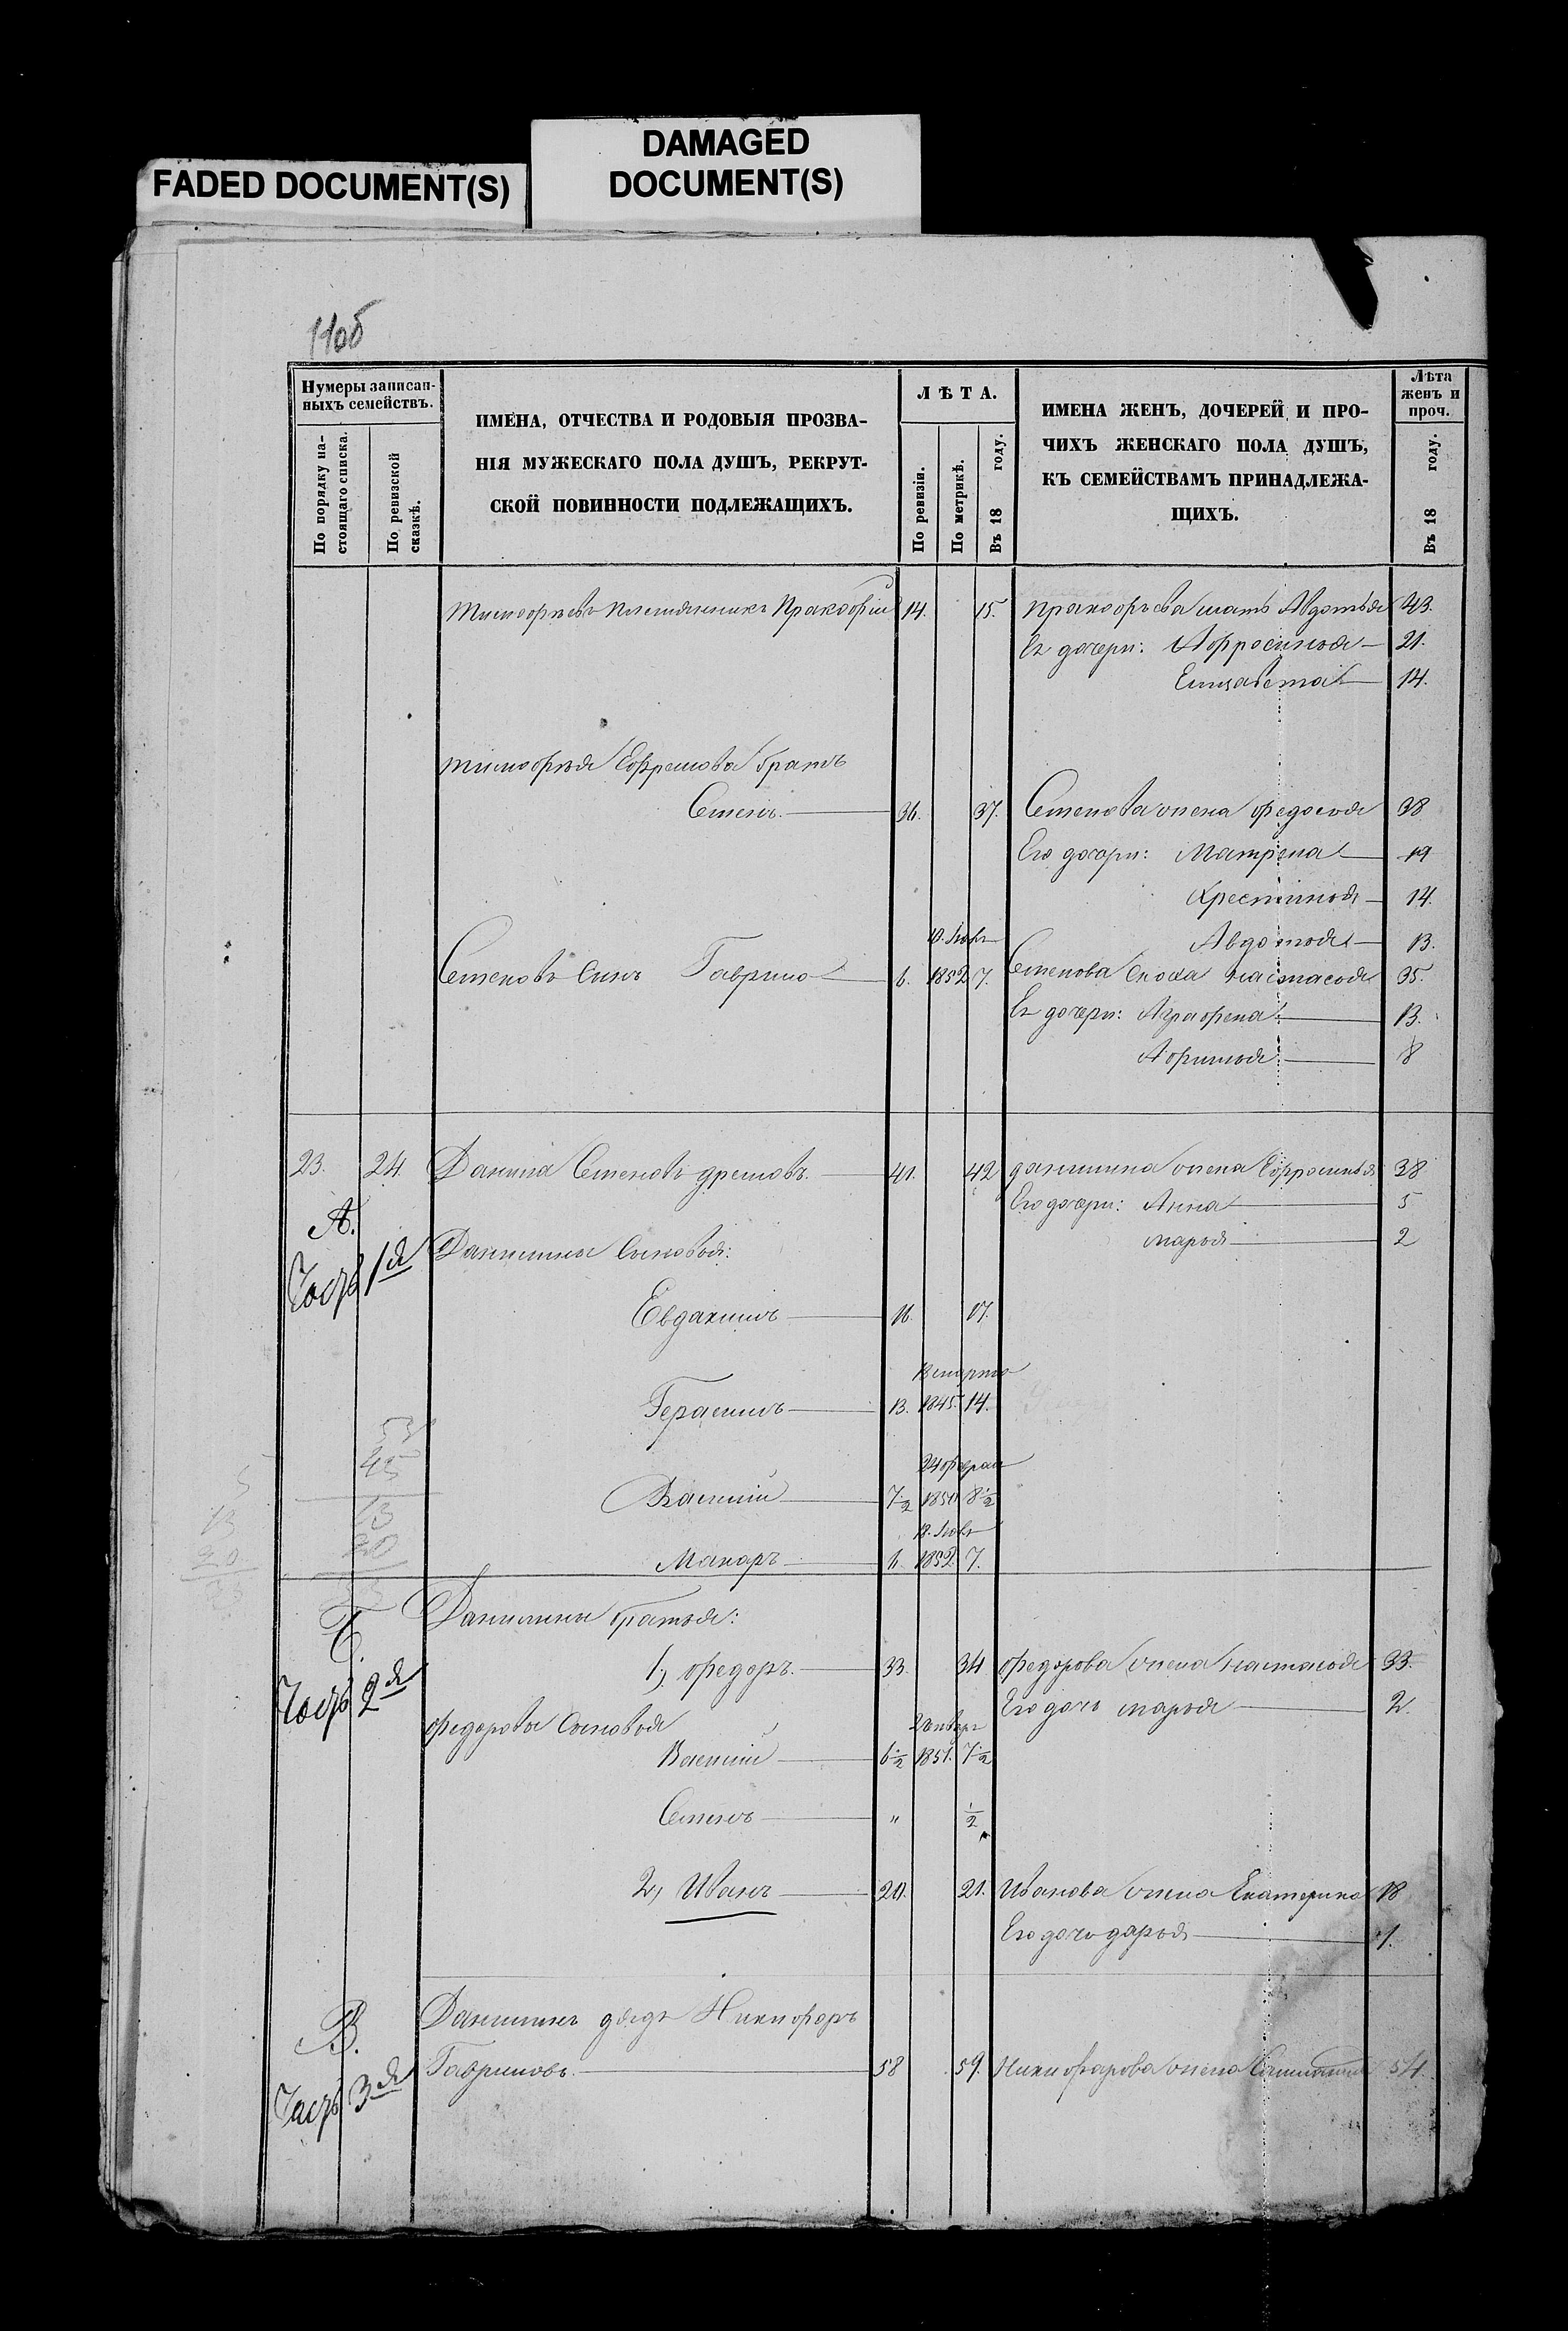 FADED DOCUMENT(S)
DAMAGED
DOCUMENT(S)
110б
Нумеры записан-
ныхъ семействъ.
По порядку на-
стоящаго списка.
По ревизской
сказкѣ.
ИМЕНА, ОТЧЕСТВА И РОДОВЫЯ ПРОЗВА-
НІЯ МУЖЕСКАГО ПОЛА ДУШЪ, РЕКРУТ-
СКОЙ ПОВИННОСТИ ПОДЛЕЖАЩИХЪ.
ЛѢТА.
По ревизіи.
По метрикѣ.
Въ 18 году.
ИМЕНА ЖЕНЪ, ДОЧЕРЕЙ И ПРО-
ЧИХЪ ЖЕНСКАГО ПОЛА ДУШЪ,
КЪ СЕМЕЙСТВАМЪ ПРИНАДЛЕЖА-
ЩИХЪ.
Лѣта
женъ и
проч.
Въ 18 году.
Тимофѣевъ племянникъ Пракофій 14. 15. Пракофьева мать Авдотья 43.
Ея дочери: Афросинья 21.
Елизавета 14.
Тимофѣя Ефремова братъ
Семенъ 36. 37. Семенова жена Федосья 38
Его дочери: Матрена 19
Хрестинья 14.
10. Ноя Авдотья 13.
Семеновъ сынъ Гаврило 6. 1852 7. Семенова сноха Настасья 35.
Ея дочери: Аграфена 13.
Афимья 8
23. 24. Данила Семеновъ 41. 42 Данилина жена Ефросинья 38
Его дочери: Анна 5
А. Марья 2
Часть 1я Данилины сыновья:
Евдакимъ 16. 17.
марта
Герасимъ 13. 1845. 14.
24 февра
Василій 7½ 1850 8½
Ноя
Макаръ 6. 1852. 7.
53
45
13
20
5
13
20
Б. Данилины братья:
1, Федоръ. 33. 34 Федорова жена Настасья 33.
Часть 2я Его дочь Марья 2.
Федоровы сыновья
Январ
Василій 6½ 1851. 7½
Семенъ " ½
2, Иванъ 20. 21. Иванова жена Екатерина 18
Его дочь Дарья 1.
В. Данилинъ дядя Никифоръ
Часть 3я Гавриловъ. 58 59. Никифорова жена 54.